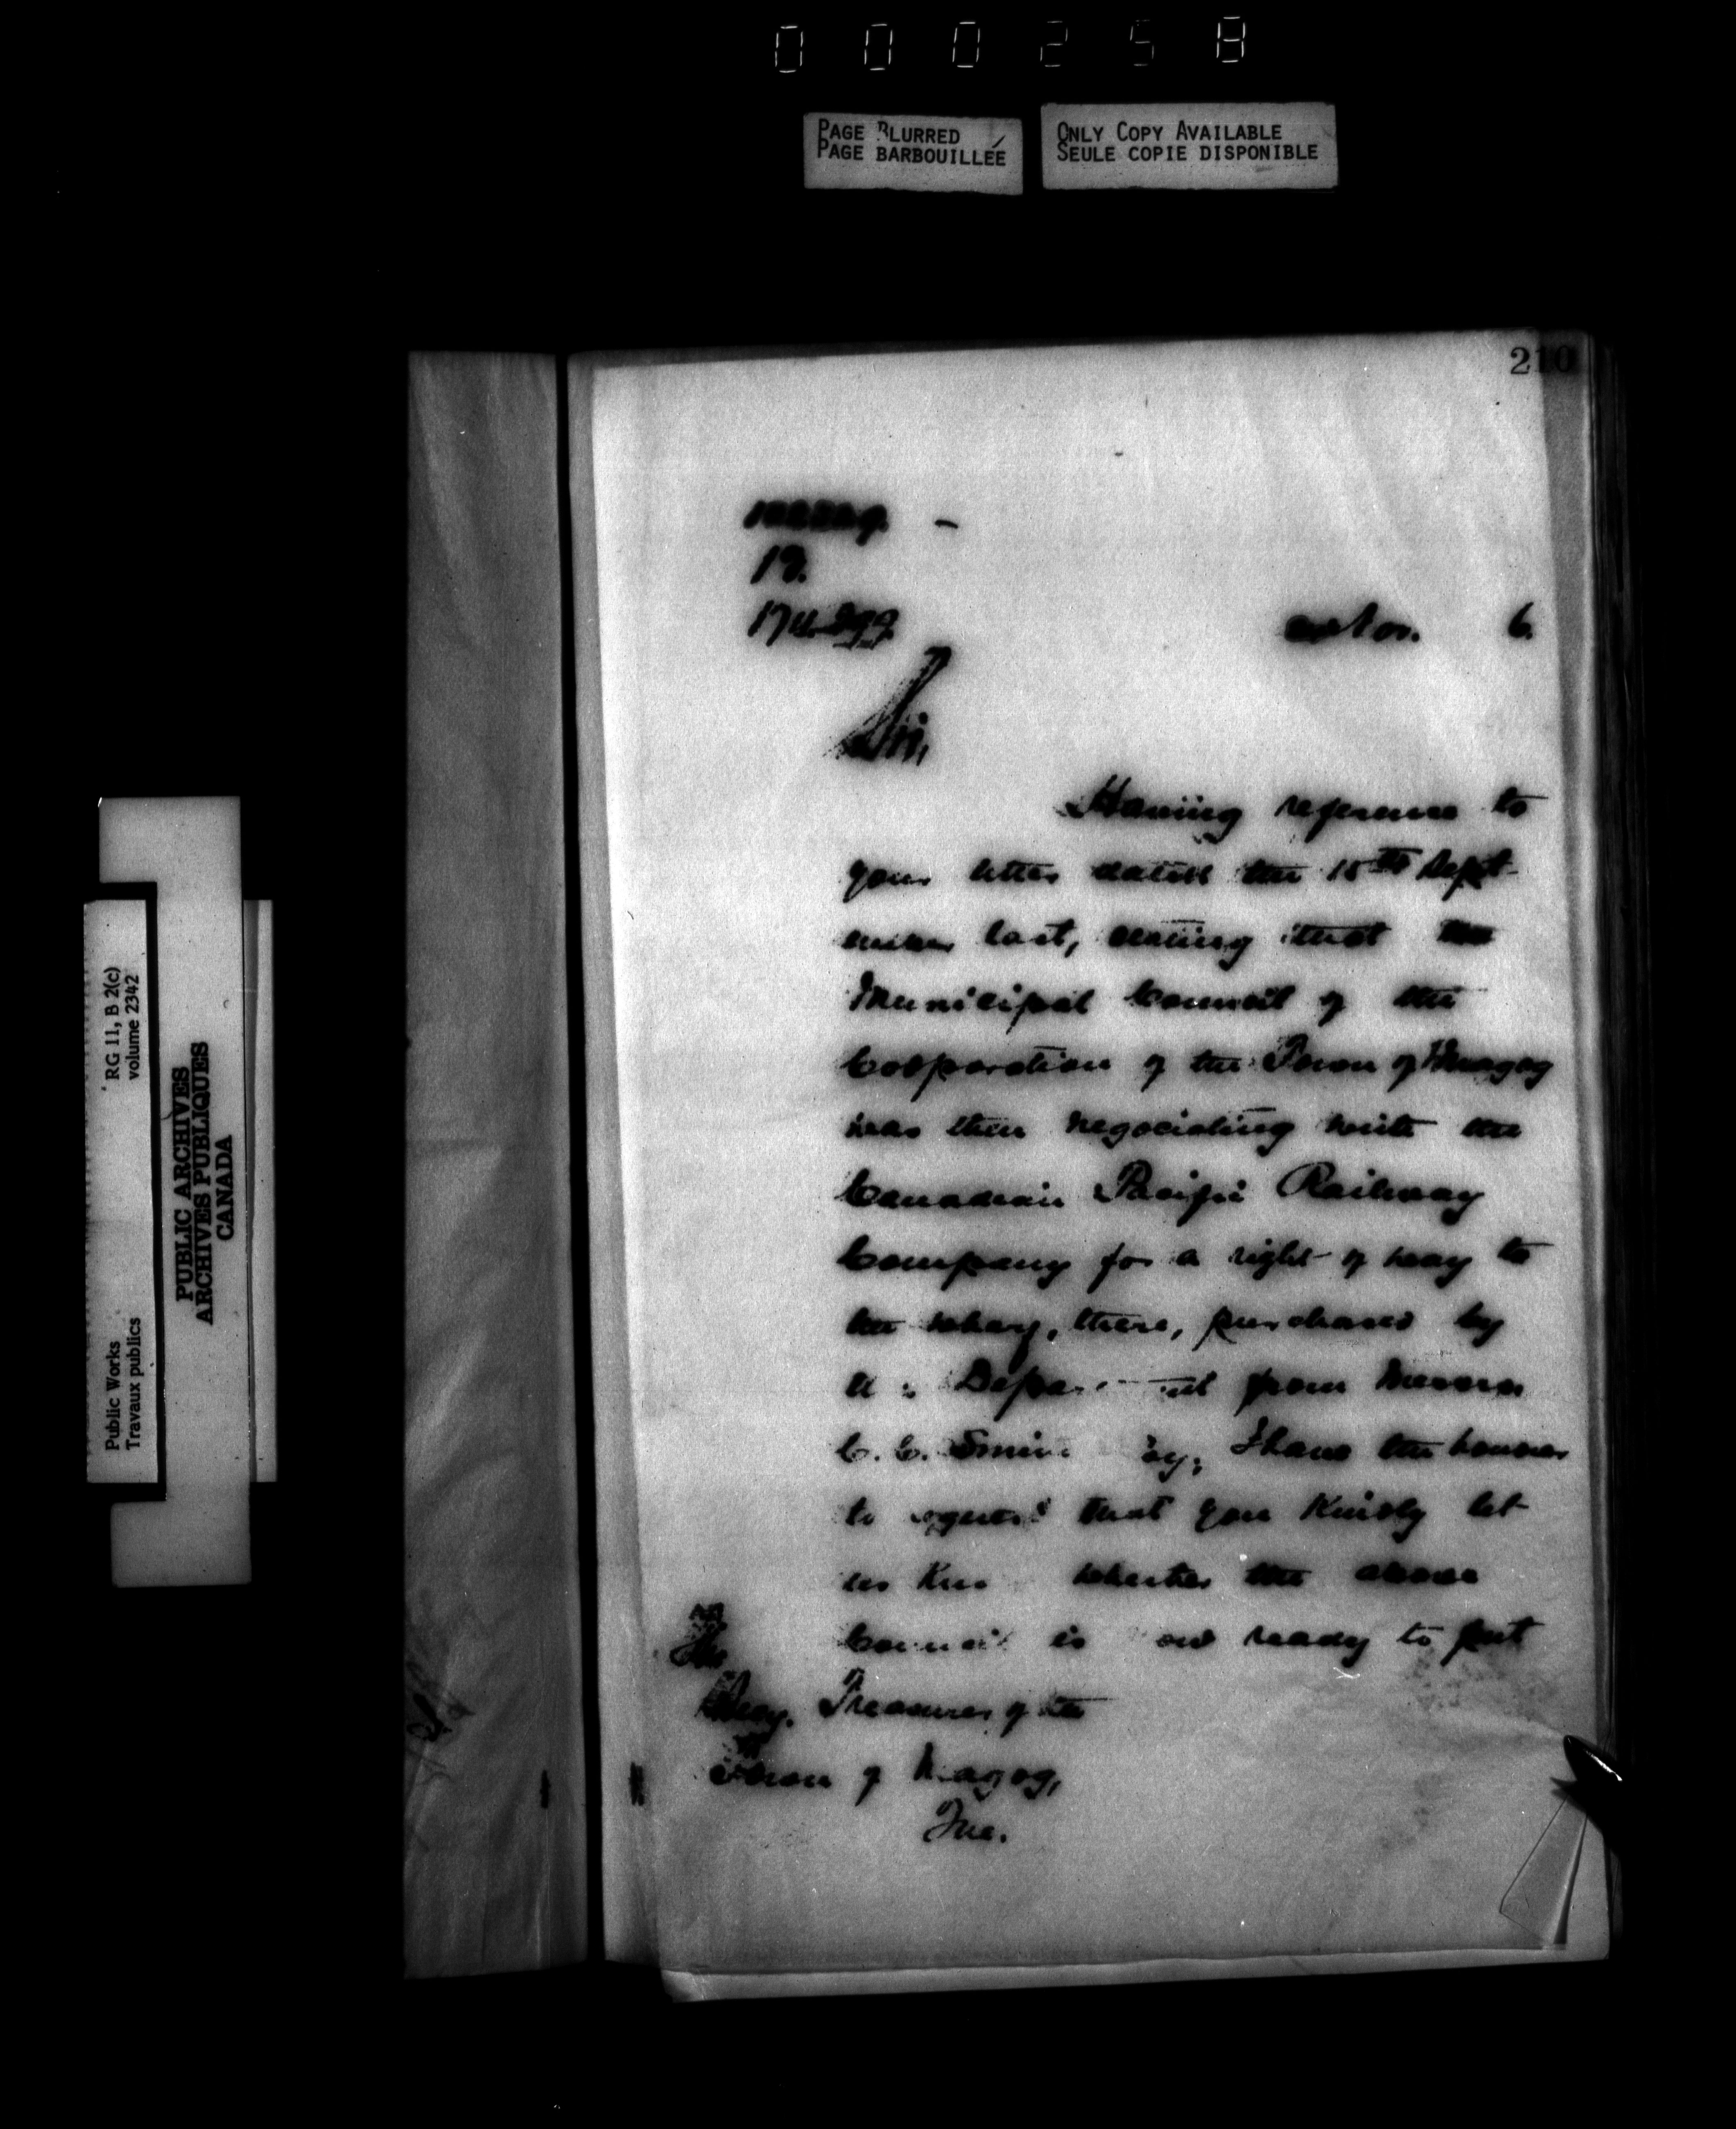 000258
PAGE BLURRED
PAGE BARBOUILLÉE
ONLY COPY AVAILABLE
SEULE COPIE DISPONIBLE
210
19.
6.
Sir,
Having reference to
your letter dated the 15th Sept-
last, stating that the
Municipal Council of the
Corporation of the Town of Magog
was then negociating with the
Canadian Pacific Railway
Company for a right of way to
the wharf, there, purchased by
from Messrs
C. C. I have the honour
to request that you kindly let
us whether the above
Council is ready to put
The
Secy. Treasurer of the
Town of Magog,
Que.
RG 11, B 2(c)
volume 2342
Public Works
Travaux publics
PUBLIC ARCHIVES
ARCHIVES PUBLIQUES
CANADA